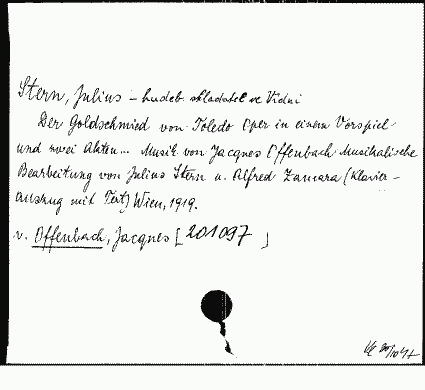 Stern, Julius – hudeb. skladatel ve Vídni
Der Goldschmied von Toledo Oper in einem Vorspiel
und zwei Akten... Musik von Jacques Offenbach Musikalische
Bearbeitung von Julius Stern u. Alfred Zamara (Klavier-
auszug mit Text) Wien, 1919.
v. Offenbach, Jacques [201097]